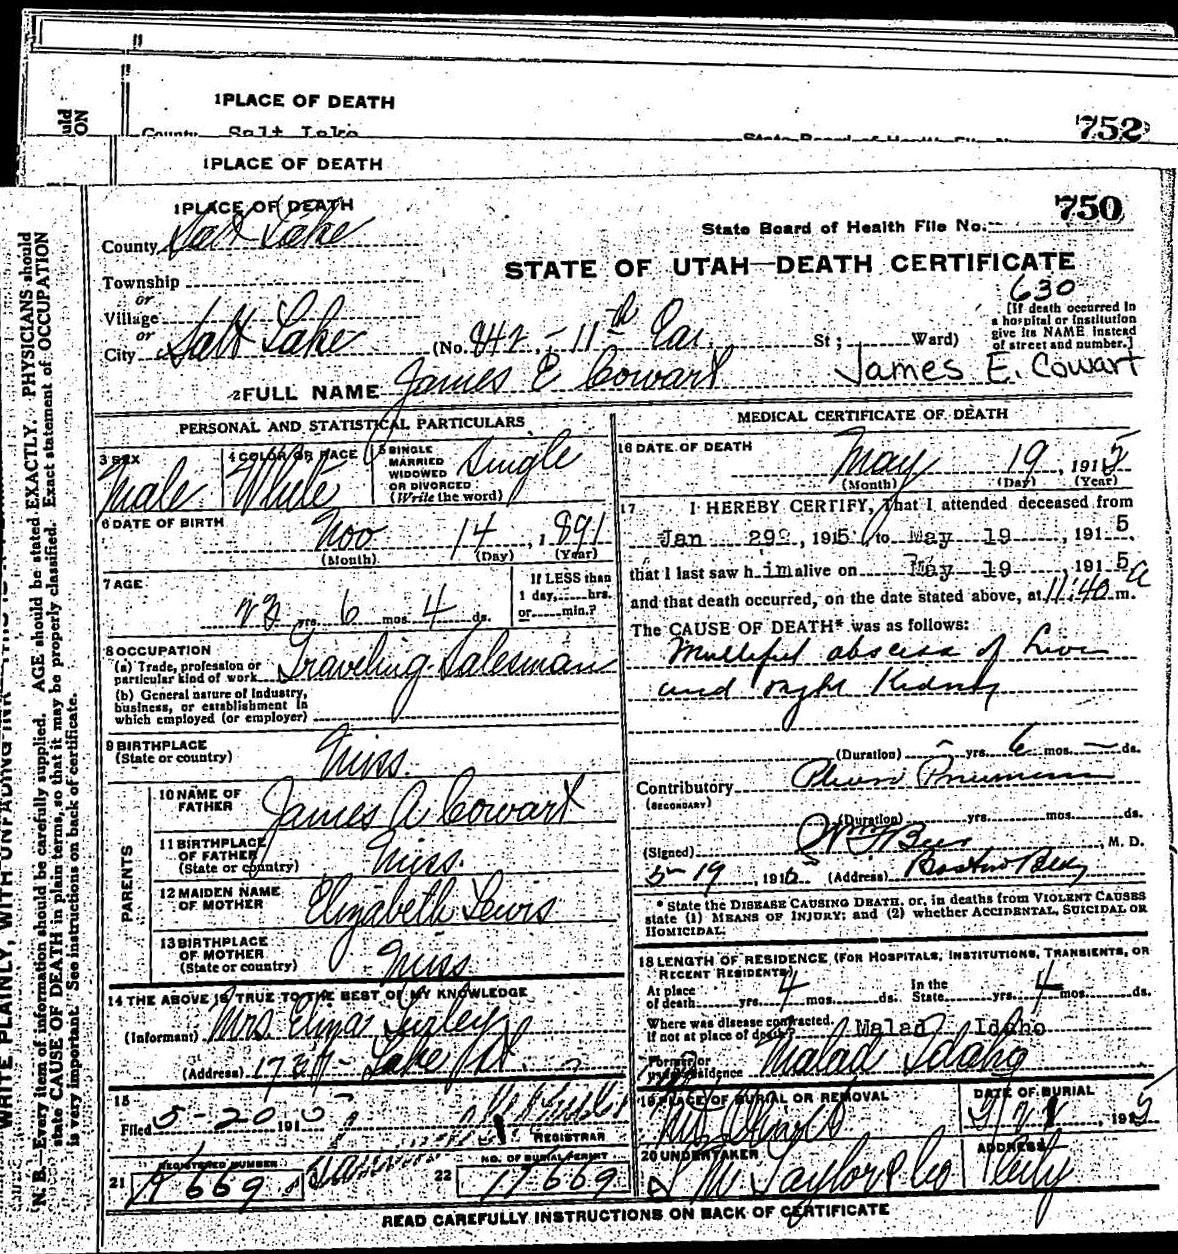 1 PLACE OF DEATH
County Salt Lake
State Board of Health File No.
752
1 PLACE OF DEATH
1 PLACE OF DEATH
750
County Salt Lake
State Board of Health File No.
STATE OF UTAH—DEATH CERTIFICATE
Township
or
Village
or
City Salt Lake (No. 842 - 11th Ea. St; Ward)
630
[If death occurred in a hospital or institution give its NAME instead of street and number.]
2 FULL NAME James E Cowart
James E. Cowart
PERSONAL AND STATISTICAL PARTICULARS
3 SEX Male
4 COLOR OR RACE White
5 SINGLE MARRIED WIDOWED OR DIVORCED (Write the word) Single
6 DATE OF BIRTH Nov 14, 1891
(Month) (Day) (Year)
7 AGE
23 yrs. 6 mos. 4 ds.
If LESS than 1 day, hrs. or min.?
8 OCCUPATION
(a) Trade, profession or particular kind of work Traveling Salesman
(b) General nature of Industry, business, or establishment in which employed (or employer)
9 BIRTHPLACE (State or country) Miss.
PARENTS
10 NAME OF FATHER James A Cowart
11 BIRTHPLACE OF FATHER (State or country) Miss.
12 MAIDEN NAME OF MOTHER Elizabeth Lewis
13 BIRTHPLACE OF MOTHER (State or country) Miss
14 THE ABOVE IS TRUE TO THE BEST OF MY KNOWLEDGE
(Informant) Mrs Eliza
(Address) Lake
15
Filed 5-20 1915
REGISTRAR
REGISTERED NUMBER
21
NO. OF BURIAL PERMIT
22 17669
MEDICAL CERTIFICATE OF DEATH
16 DATE OF DEATH
May 19, 1915
(Month) (Day) (Year)
17 I HEREBY CERTIFY, That I attended deceased from
Jan 29, 1915, to May 19, 1915.
that I last saw him alive on May 19, 1915
and that death occurred, on the date stated above, at 11:40 a m.
The CAUSE OF DEATH* was as follows:
Multipul abscess of Liver
and right Kidney
(Duration) - yrs. 6 mos. - ds.
Contributory
(SECONDARY)
(Duration) yrs. mos. ds.
(Signed) M. D.
5-19, 191 (Address) Boston Bldg
* State the DISEASE CAUSING DEATH, or, in deaths from VIOLENT CAUSES
state (1) MEANS OF INJURY; and (2) whether ACCIDENTAL, SUICIDAL OR
HOMICIDAL.
18 LENGTH OF RESIDENCE (FOR HOSPITALS, INSTITUTIONS, TRANSIENTS, OR
RECENT RESIDENTS)
At place of death yrs. 4 mos. ds. In the State yrs. 4 mos. ds.
Where was disease contracted, if not at place of death? Malad Idaho
Former or usual residence Malad Idaho
19 PLACE OF BURIAL OR REMOVAL Mt Olivet
DATE OF BURIAL 5/21, 1915
20 UNDERTAKER S M Taylor & Co
ADDRESS City
READ CAREFULLY INSTRUCTIONS ON BACK OF CERTIFICATE
WRITE PLAINLY, WITH UNFADING INK
N. B.—Every item of information should be carefully supplied. AGE should be stated EXACTLY. PHYSICIANS should
state CAUSE OF DEATH in plain terms, so that it may be properly classified. Exact statement of OCCUPATION
is very important. See instructions on back of certificate.